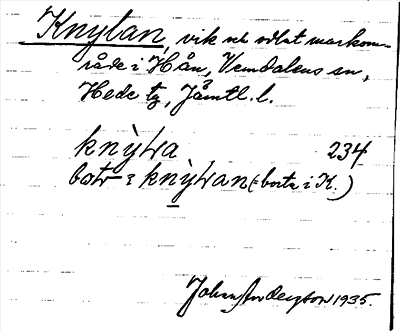 Knytan, vik och odlat markom-
råde i Hån, Vemdalens sn,
Hede tg, Jämtl. l.
knỳta 234
bort i knỳtan (= borta i K.)
Johan Anderzson 1935.